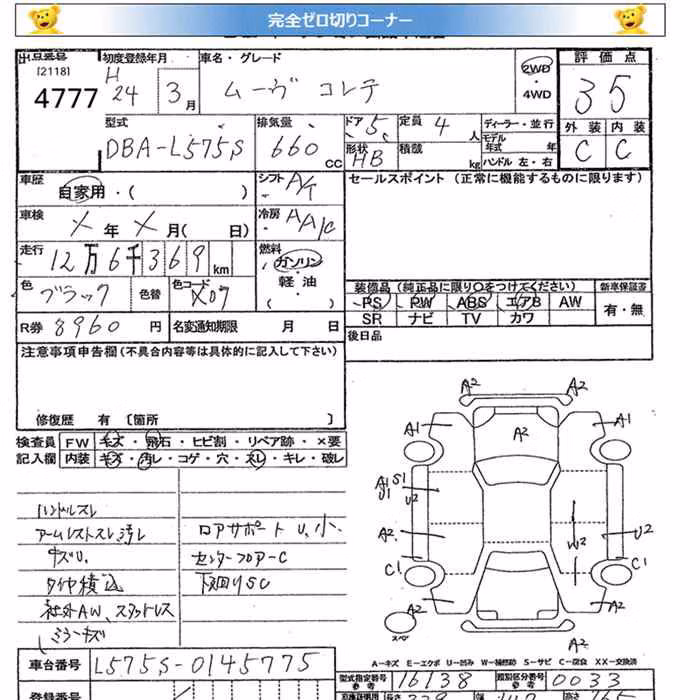 完全ゼロ切りコーナー
出品番号
[2118]
4777
初度登録年月
H 24 3月
車名・グレード
ムーヴ コンテ
2WD
・
4WD
評価点
35
外装 内装
C C
型式
DBA-L575S
排気量
660 CC
ドア 5
形状 HB
定員 4 人
積載 kg
ディーラー・並行
モデル年式 年
ハンドル 左・右
車歴
自家用・( )
シフト A/T
セールスポイント (正常に機能するものに限ります)
車検
X年X月( 日)
冷房 AA/C
走行
12万6千369km
燃料
ガソリン
・
軽油
・
( )
色
ブラック
色替
色コード
X07
装備品(純正品に限り○をつけてください)
新車保証書
PS PW ABS エアB AW
SR ナビ TV カワ
有・無
R券 8960円
名変通知期限 月 日
後日品
注意事項申告欄(不具合内容等は具体的に記入して下さい)
修復歴 有 〔箇所 〕
検査員
記入欄
FW キズ・飛石・ヒビ割・リペア跡・×要
内装 キズ・汚レ・コゲ・穴・スレ・キレ・破レ
ハンドルスレ
アームレストスレ汚レ
キズU.
タイヤ積込
社外AW、スタッドレス
ミラーキズ
ロアサポートU.小.
センターフロアーC
下回りSC
A2 A2
A2
A1 A1
A1 S1
U1 U2
A2
U2
W2
C1 C1
A2 A2
A2
スペア
A-キズ E-エクボ U-凹み W-補修跡 S-サビ C-腐食 XX-交換済
車台番号 L575S-0145775
型式指定番号
参考
16138
類別区分番号
参考
0033
登録番号